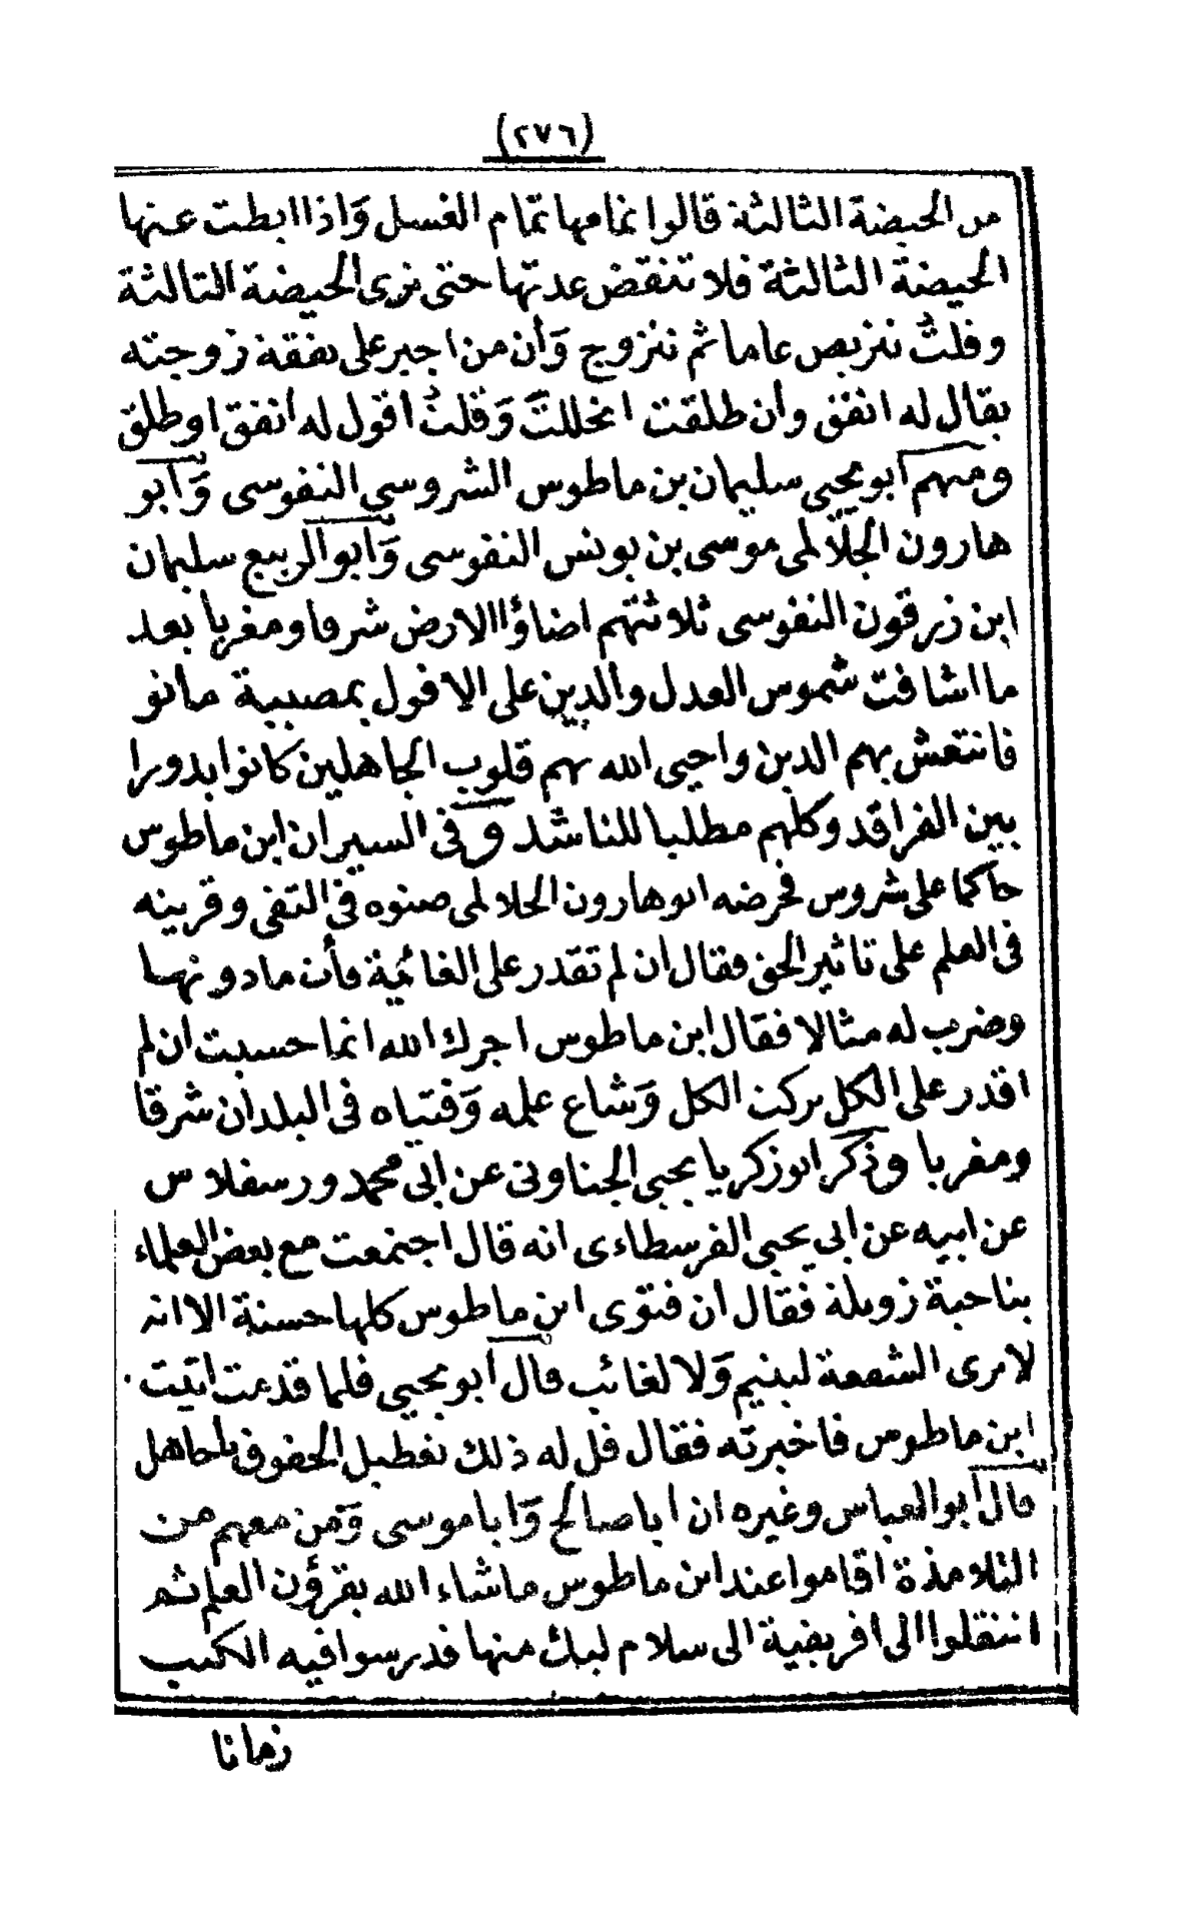 (٢٧٦)
من الحيضة الثالثة قالوا تمامها تمام الغسل وَاذا ابطت عنها
الحيضة الثالثة فلا تنقض عدتها حتى ترى الحيضة الثالثة
وقلتُ تتربص عاما ثم تتزوج وَأن من اجبر على نفقة زوجته
يقال له انفق وأن طلقت انحللتَ وَقلتُ اقول له انفق او طلق
ومنهم ابو يحيى سليمان بن ماطوس الشروسى النفوسى وَابو
هارون الجلّالمى موسى بن يونس النفوسى وَابو الربيع سليمان
ابن زرقون النفوسى ثلاثتهم اضاؤا الارض شرقا ومغربا بعد
ما اشافت شموس العدل والدين على الافول بمصيبة مانو
فانتعش بهم الدين واحيى الله بهم قلوب الجاهلين كانوا بدورا
بين الفراقد وكلهم مطلبا للناشد وفى السير ان ابن ماطوس
حاكما على شروس فحرضه ابو هارون الجلالمى صنوه فى التقى وقرينه
فى العلم على تاثير الحق فقال ان لم تقدر على الغائمة فأت مادونها
وضرب له مثالا فقال ابن ماطوس اجرك الله انما حسبت ان لم
اقدر على الكل تركت الكل وَشاع علمه وَفتياه فى البلدان شرقا
ومغربا وذكر ابو زكريا يحيى الجناونى عن ابى محمد ورسفلاس
عن ابيه عن ابي يحيى الفرسطاءى انه قال اجتمعت مع بعض العلماء
بناحية زويلة فقال ان فتوى ابن ماطوس كلها حسنة الا انه
لا يرى الشفعة ليتيم وَلا لغائب قال ابو يحيى فلما قدمت اتيت
ابن ماطوس فاخبرته فقال قل له ذلك تعطيل الحقوق يا جاهل
قال ابو العباس وغيره ان ابا صالح وَابا موسى وَمن معهم من
التلامذة اقاموا عند ابن ماطوس ماشاء الله يقرؤن العلم ثم
انتقلوا الى افريقية الى سلام لبك منها فدرسوا فيه الكتب
زمانا